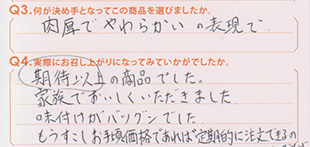 Q3.何が決め手となってこの商品を選びましたか。
肉厚でやわらかいの表現で
Q4.実際にお召し上がりになってみていかがでしたか。
期待以上の商品でした。
家族でおいしくいただきました
味付けがバツグンでした
もうすこしお手頃価格であれば定期的に注文できるの